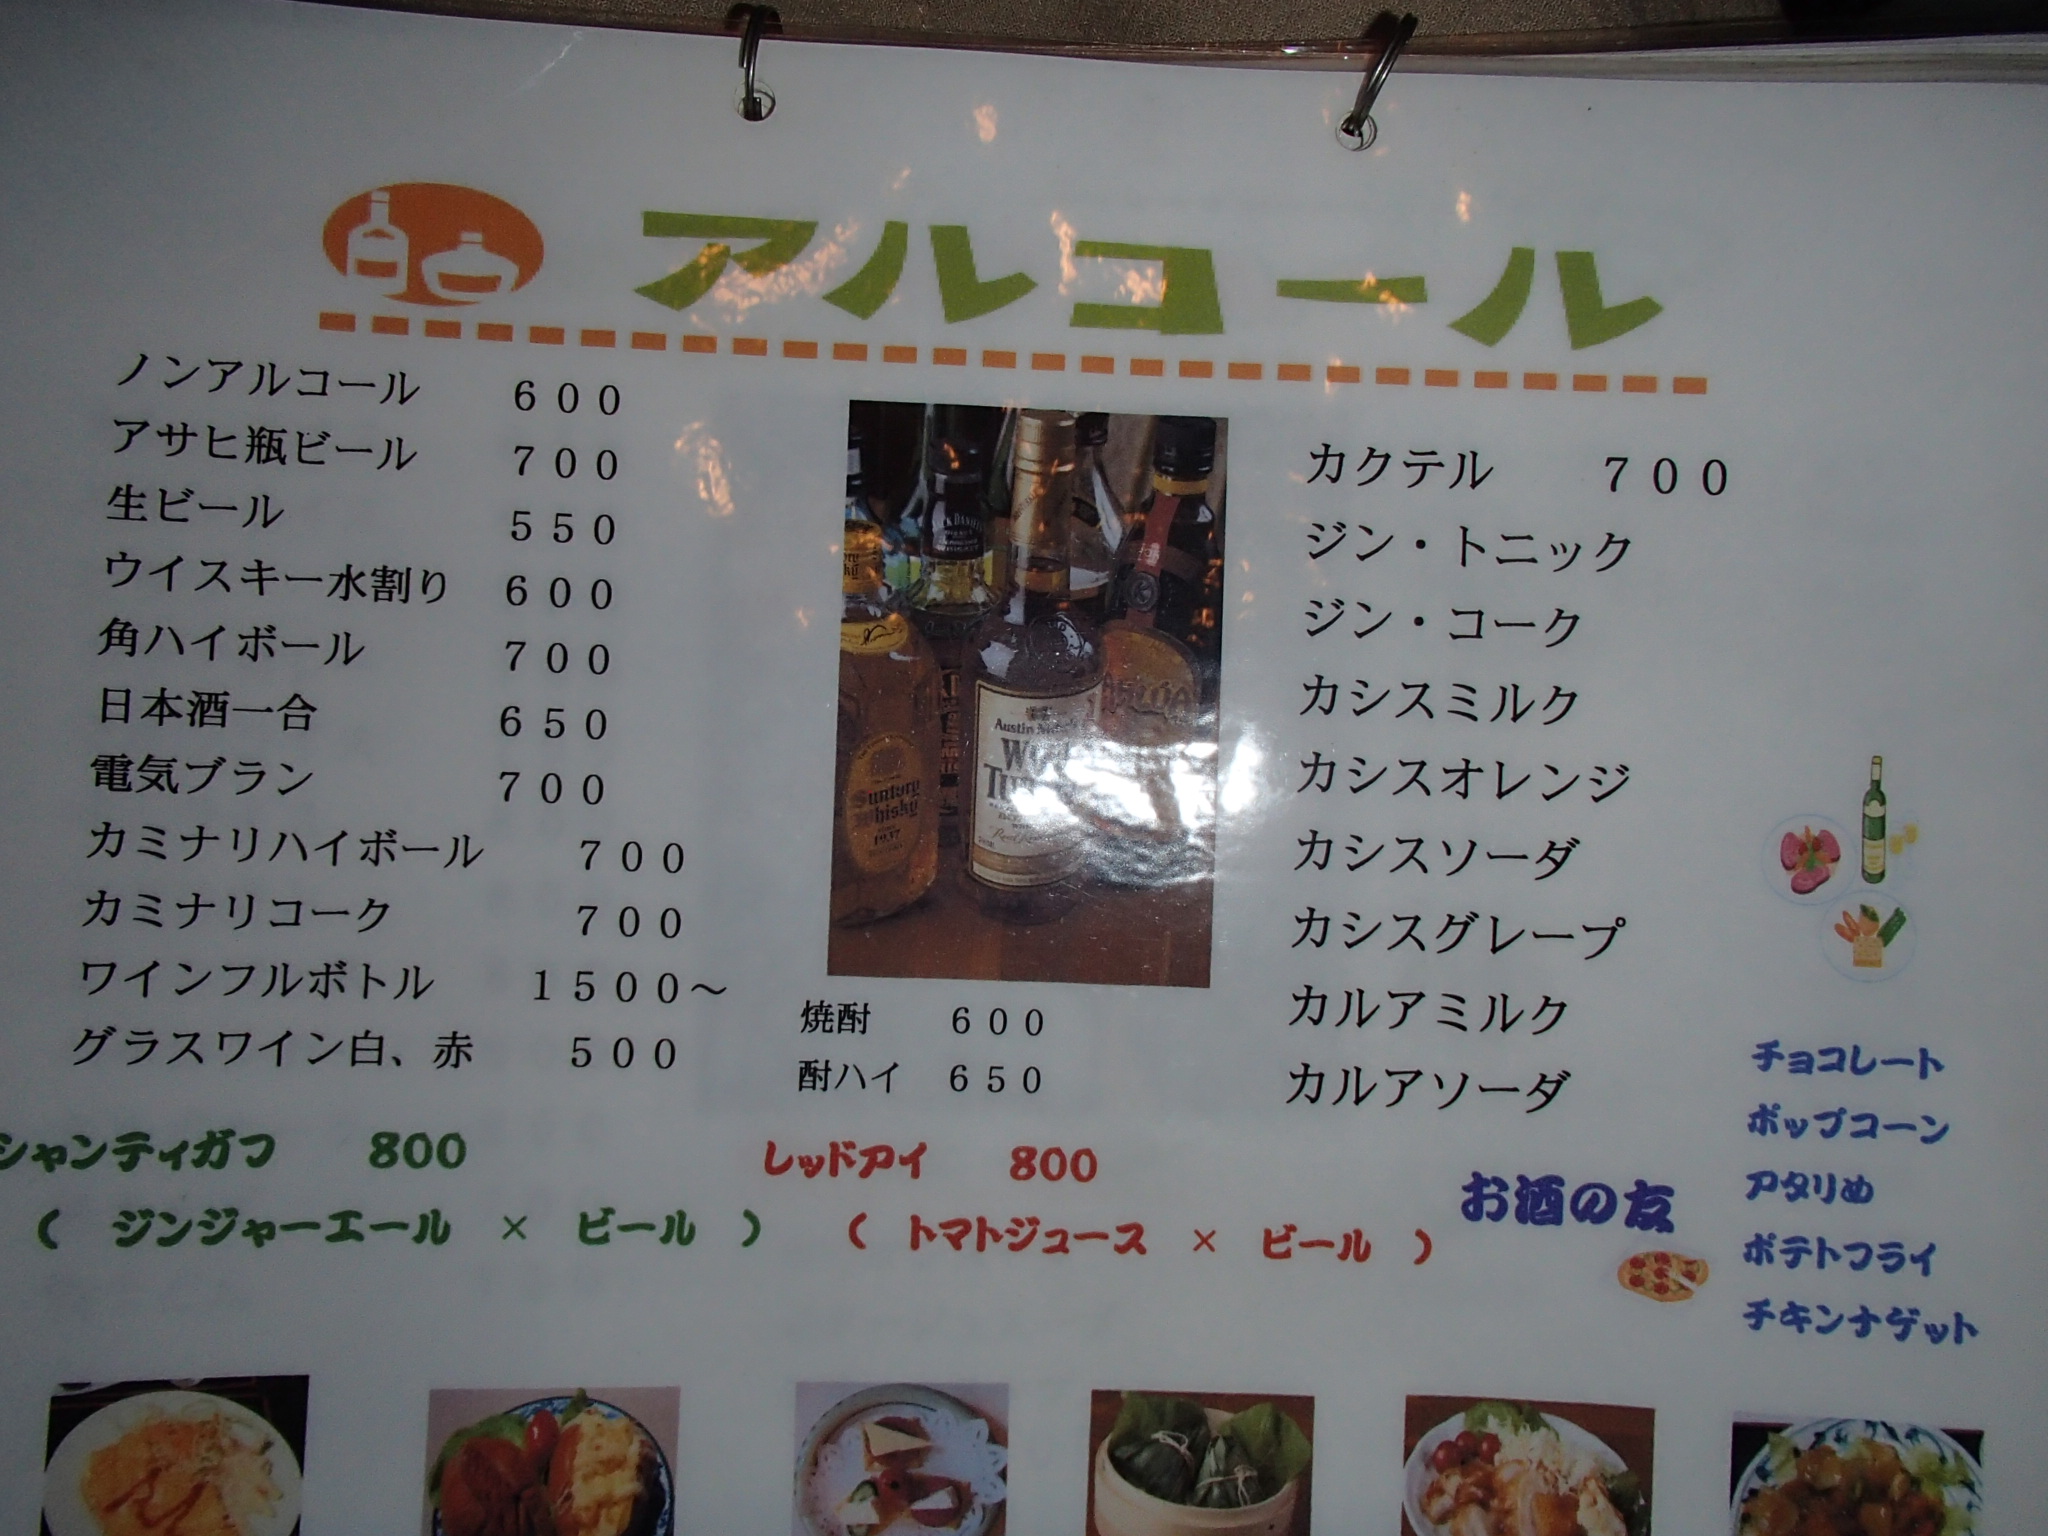 アルコール
ノンアルコール 600
アサヒ瓶ビール 700
生ビール 550
ウイスキー水割り 600
角ハイボール 700
日本酒一合 650
電気ブラン 700
カミナリハイボール 700
カミナリコーク 700
ワインフルボトル 1500～
グラスワイン白、赤 500
Suntory
Whisky
1937
JACK DANIEL'S
Austin
焼酎 600
酎ハイ 650
カクテル 700
ジン・トニック
ジン・コーク
カシスミルク
カシスオレンジ
カシスソーダ
カシスグレープ
カルアミルク
カルアソーダ
シャンティガフ 800
( ジンジャーエール × ビール )
レッドアイ 800
( トマトジュース × ビール )
お酒の友
チョコレート
ポップコーン
アタリめ
ポテトフライ
チキンナゲット